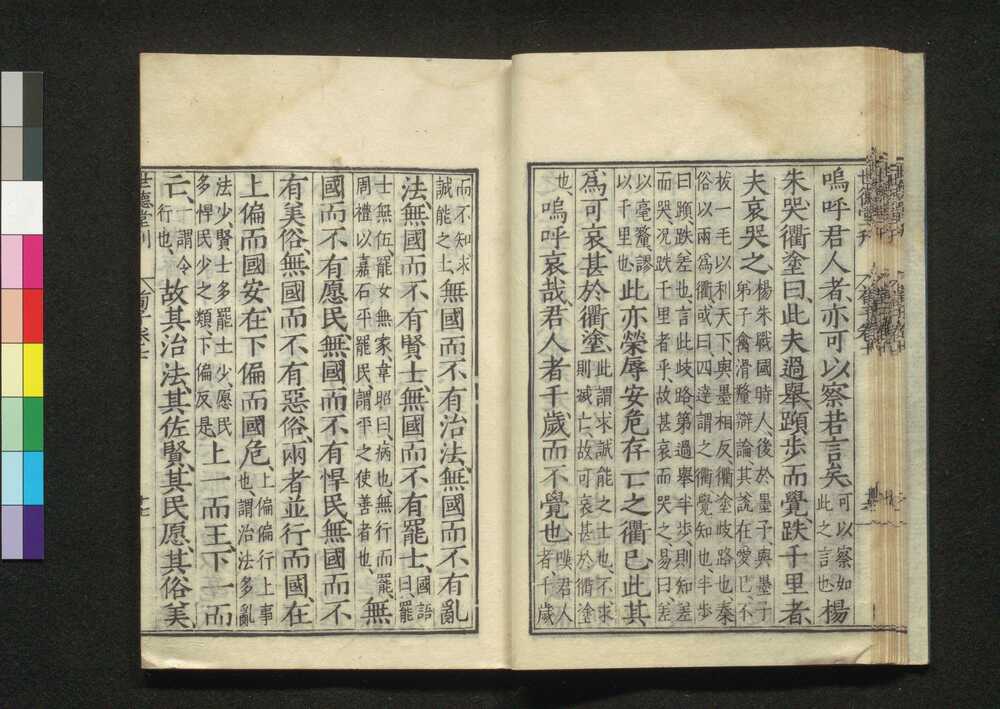 嗚呼君人者、亦可以察若言矣、可以察如此之言也、楊
朱哭衢塗曰、此夫過舉、蹞步而覺、跌千里者、
夫哀哭之、楊朱戰國時人、後於墨子、與墨子弟子禽滑釐辯論、其說在愛已、不
拔一毛以利天下、與墨相反、衢塗歧路也、秦
俗以兩爲衢、或曰、四達謂之衢、覺知也、半步
曰蹞、跌差也、言此歧路、第過舉半步、則知差
而哭、况跌千里者乎、故甚哀而哭之、易曰、差
以毫釐、謬以千里也、此亦榮辱安危存亡之衢已、此其
爲可哀、甚於衢塗、此謂求誠能之士也、不求則滅亡、故可哀甚於衢塗
也、嗚呼哀哉、君人者千歲而不覺也、嘆君人者千歲
而不知求誠能之士、無國而不有治法、無國而不有亂
法、無國而不有賢士、無國而不有罷士、國語曰、罷
士無伍、罷女無家、韋昭曰、病也、無行而罷、
周禮以嘉石平罷民、謂平之使善者也、無
國而不有愿民、無國而不有悍民、無國而不
有美俗、無國而不有惡俗、兩者並行而國在、
上偏而國安、在下偏而國危、上偏偏行上事也、謂治法多亂
法少、賢士多罷士少、愿民多悍民少之類、下偏反是、上一而王、下一而
亡、一謂令行也、故其治法、其佐賢、其民愿、其俗美、
世德堂刊 荀子卷七 十七